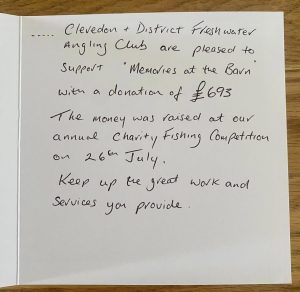 ..... Clevedon + District Freshwater
Angling Club are pleased to
Support "Memories at the Barn"
with a donation of £693
The money was raised at our
annual Charity Fishing Competition
on 26th July.
Keep up the great work and
Services you provide.